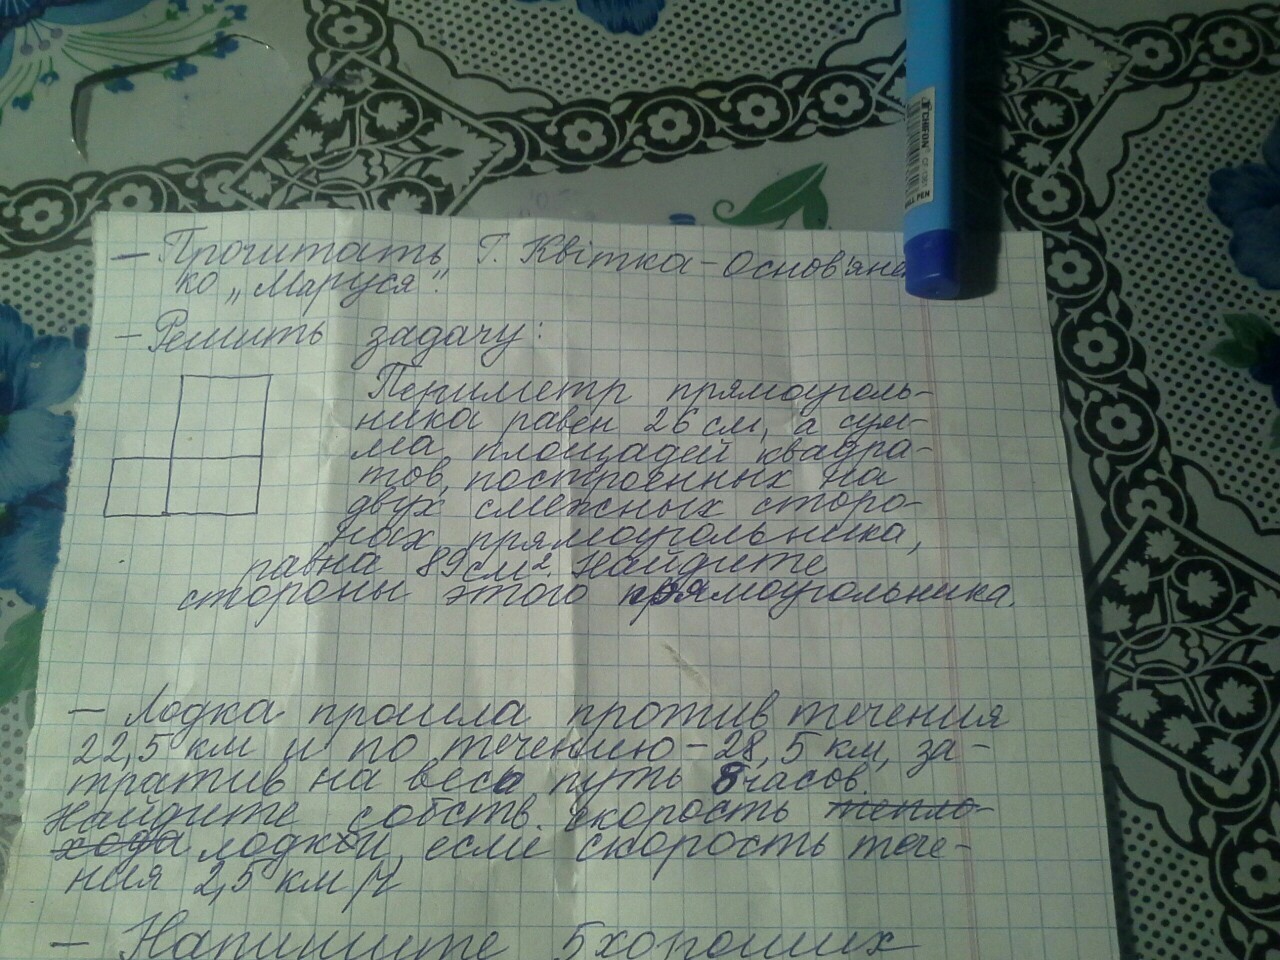 — Прочитать Г. Квітка-Основ'яне
ко „Маруся".
— Решить задачу:
Периметр прямоуголь-
ника равен 26 см, а сум-
ма площадей квадра-
тов, построенных на
двух смежных сторо-
ных прямоугольника,
равна 89 см². Найдите
стороны этого прямоугольника.
— Лодка прошла против течения
22,5 км и по течению – 28,5 км, за-
тратив на весь путь 8 часов.
Найдите собств. скорость тепло-
хода лодкой, если скорость тече-
ния 2,5 км/ч
— Напишите 5 хороших
BALL PEN